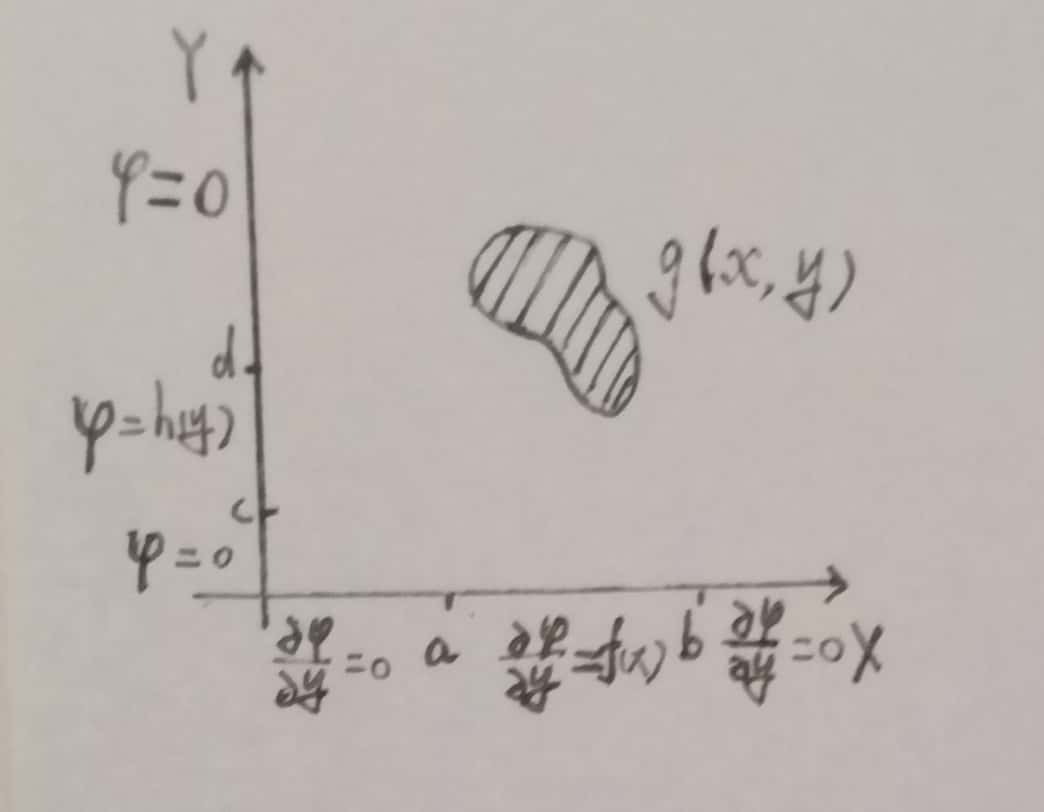 Y
φ=0
g(x,y)
d
φ=h(y)
c
φ=0
∂φ/∂y=0 a ∂φ/∂y=f(x) b ∂φ/∂y=0 X